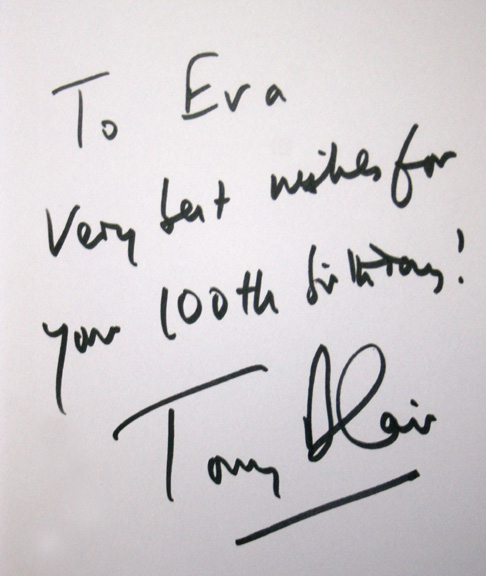 To Eva
Very best wishes for
your 100th birthday!
Tony Blair